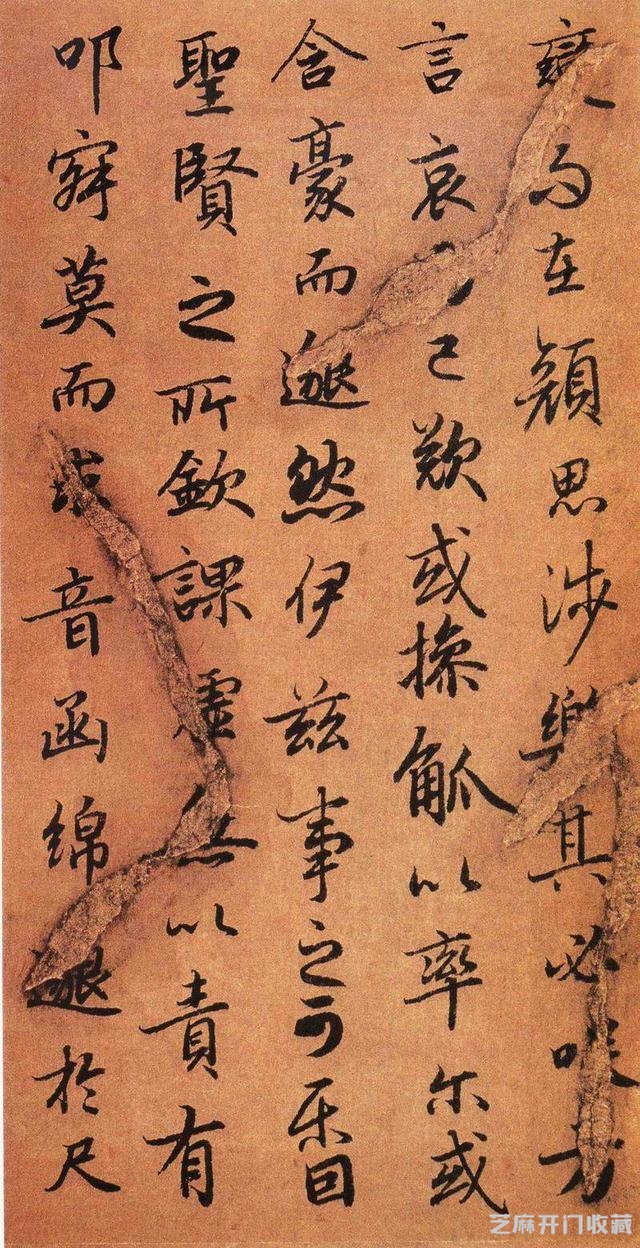 變而在顏思涉樂其必咲方
言哀已歎或操觚以率尔或
含豪而邈然伊兹事之可樂固
聖賢之所欽課虛無以責有
叩寂莫而求音函綿邈於尺
芝麻开门收藏